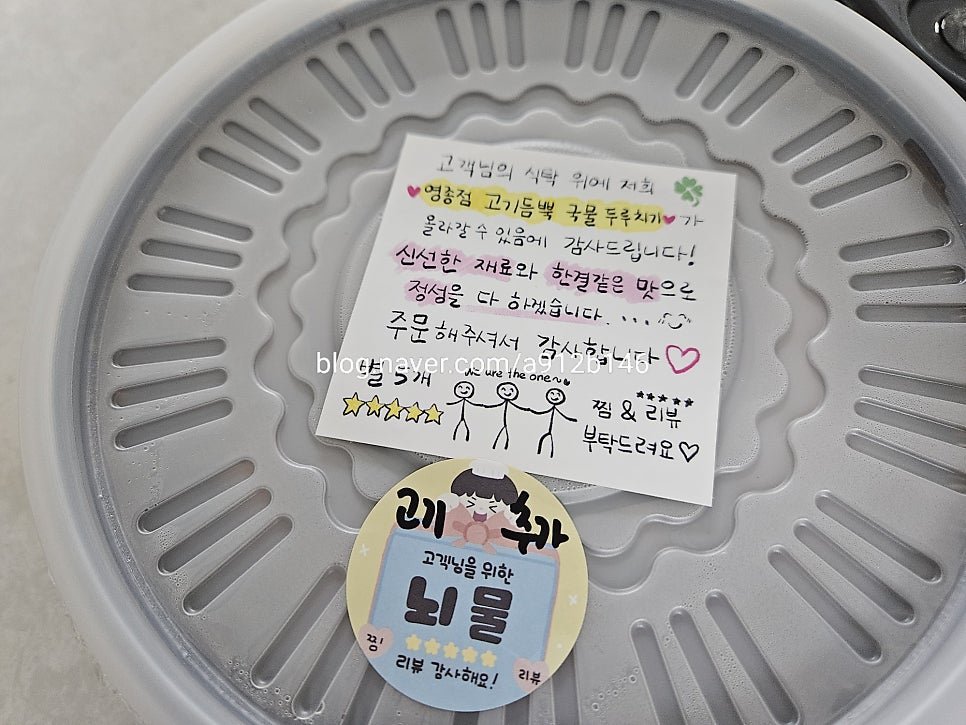 고객님의 식탁 위에 저희
영종점 고기듬뿍 국물두루치기 가
올라갈 수 있음에 감사드립니다!
신선한 재료와 한결같은 맛으로
정성을 다 하겠습니다....
주문해주셔서 감사합니다
blog.naver.com/a912b146
별 5개
we are the one~
찜 & 리뷰
부탁드려요
고기 추가
고객님을 위한
뇌물
찜!
리뷰 감사해요!
리뷰